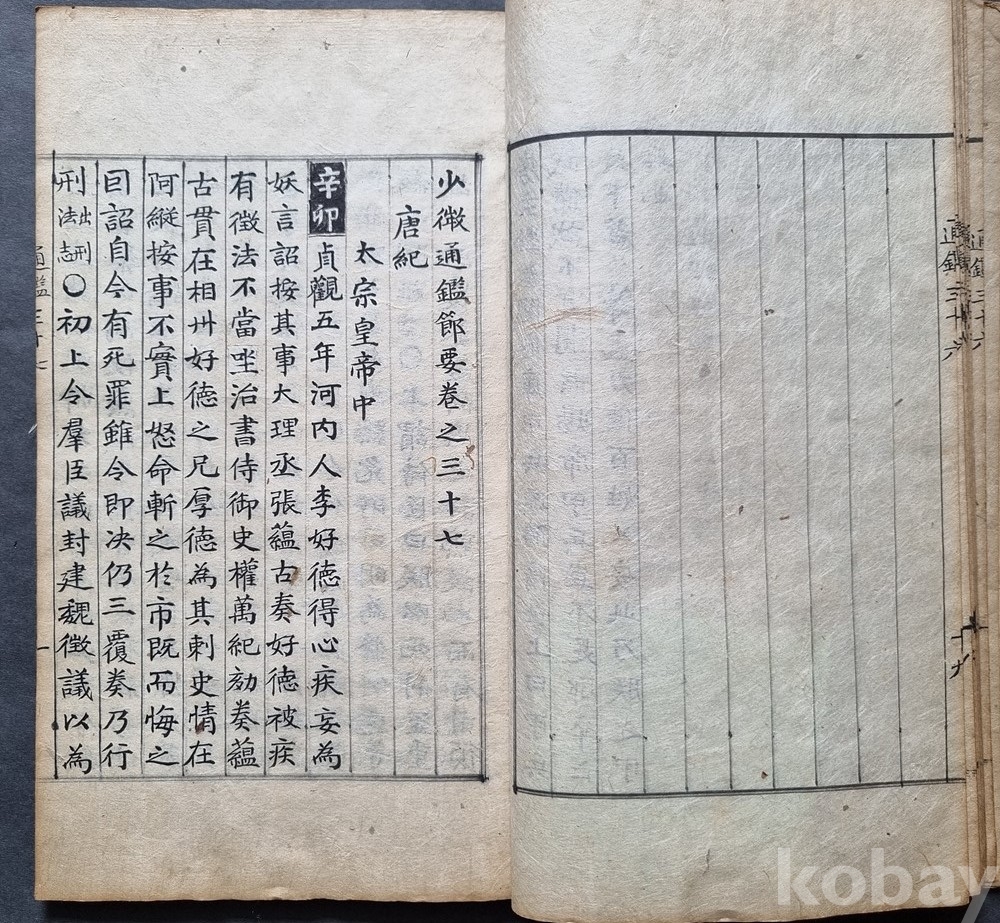 通鑑三十六
十九
少微通鑑節要卷之三十七
唐紀
太宗皇帝中
辛卯貞觀五年河內人李好德得心疾妄為
妖言詔按其事大理丞張蘊古奏好德被疾
有徵法不當坐治書侍御史權萬紀劾奏蘊
古貫在相州好德之兄厚德為其刺史情在
阿縱按事不實上怒命斬之於市既而悔之
因詔自今有死罪雖令即决仍三覆奏乃行
刑出刑法志○初上令羣臣議封建魏徵議以為
通鑑三十七
一
kobay